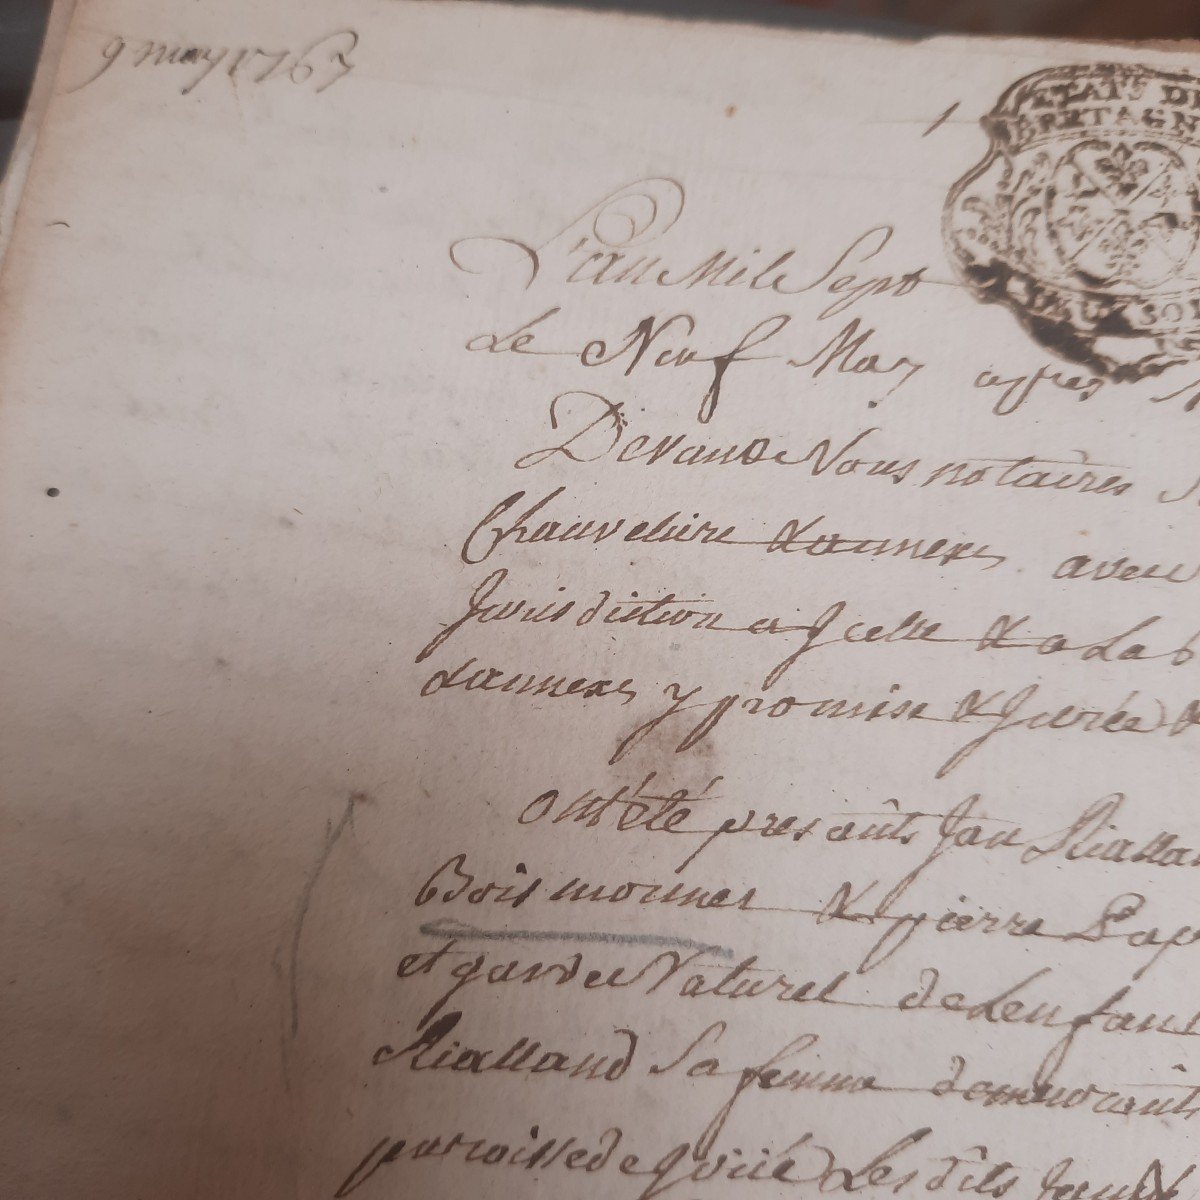 9 may 1763
1
ETATS DE
BRETAGN
DEUX SO
L'an Mil Sept
Le Neuf May apres
Devant Nous notaires
Chauveliere & annexes avec
Jurisdiction & a La
& annexes y promise & Jurée &
ont été presents Jan Rialla
Bois monnet & pierre
et garde Naturel de Lenfant
Rialland Sa femme demeurants
paroisse de Les dits Jan &